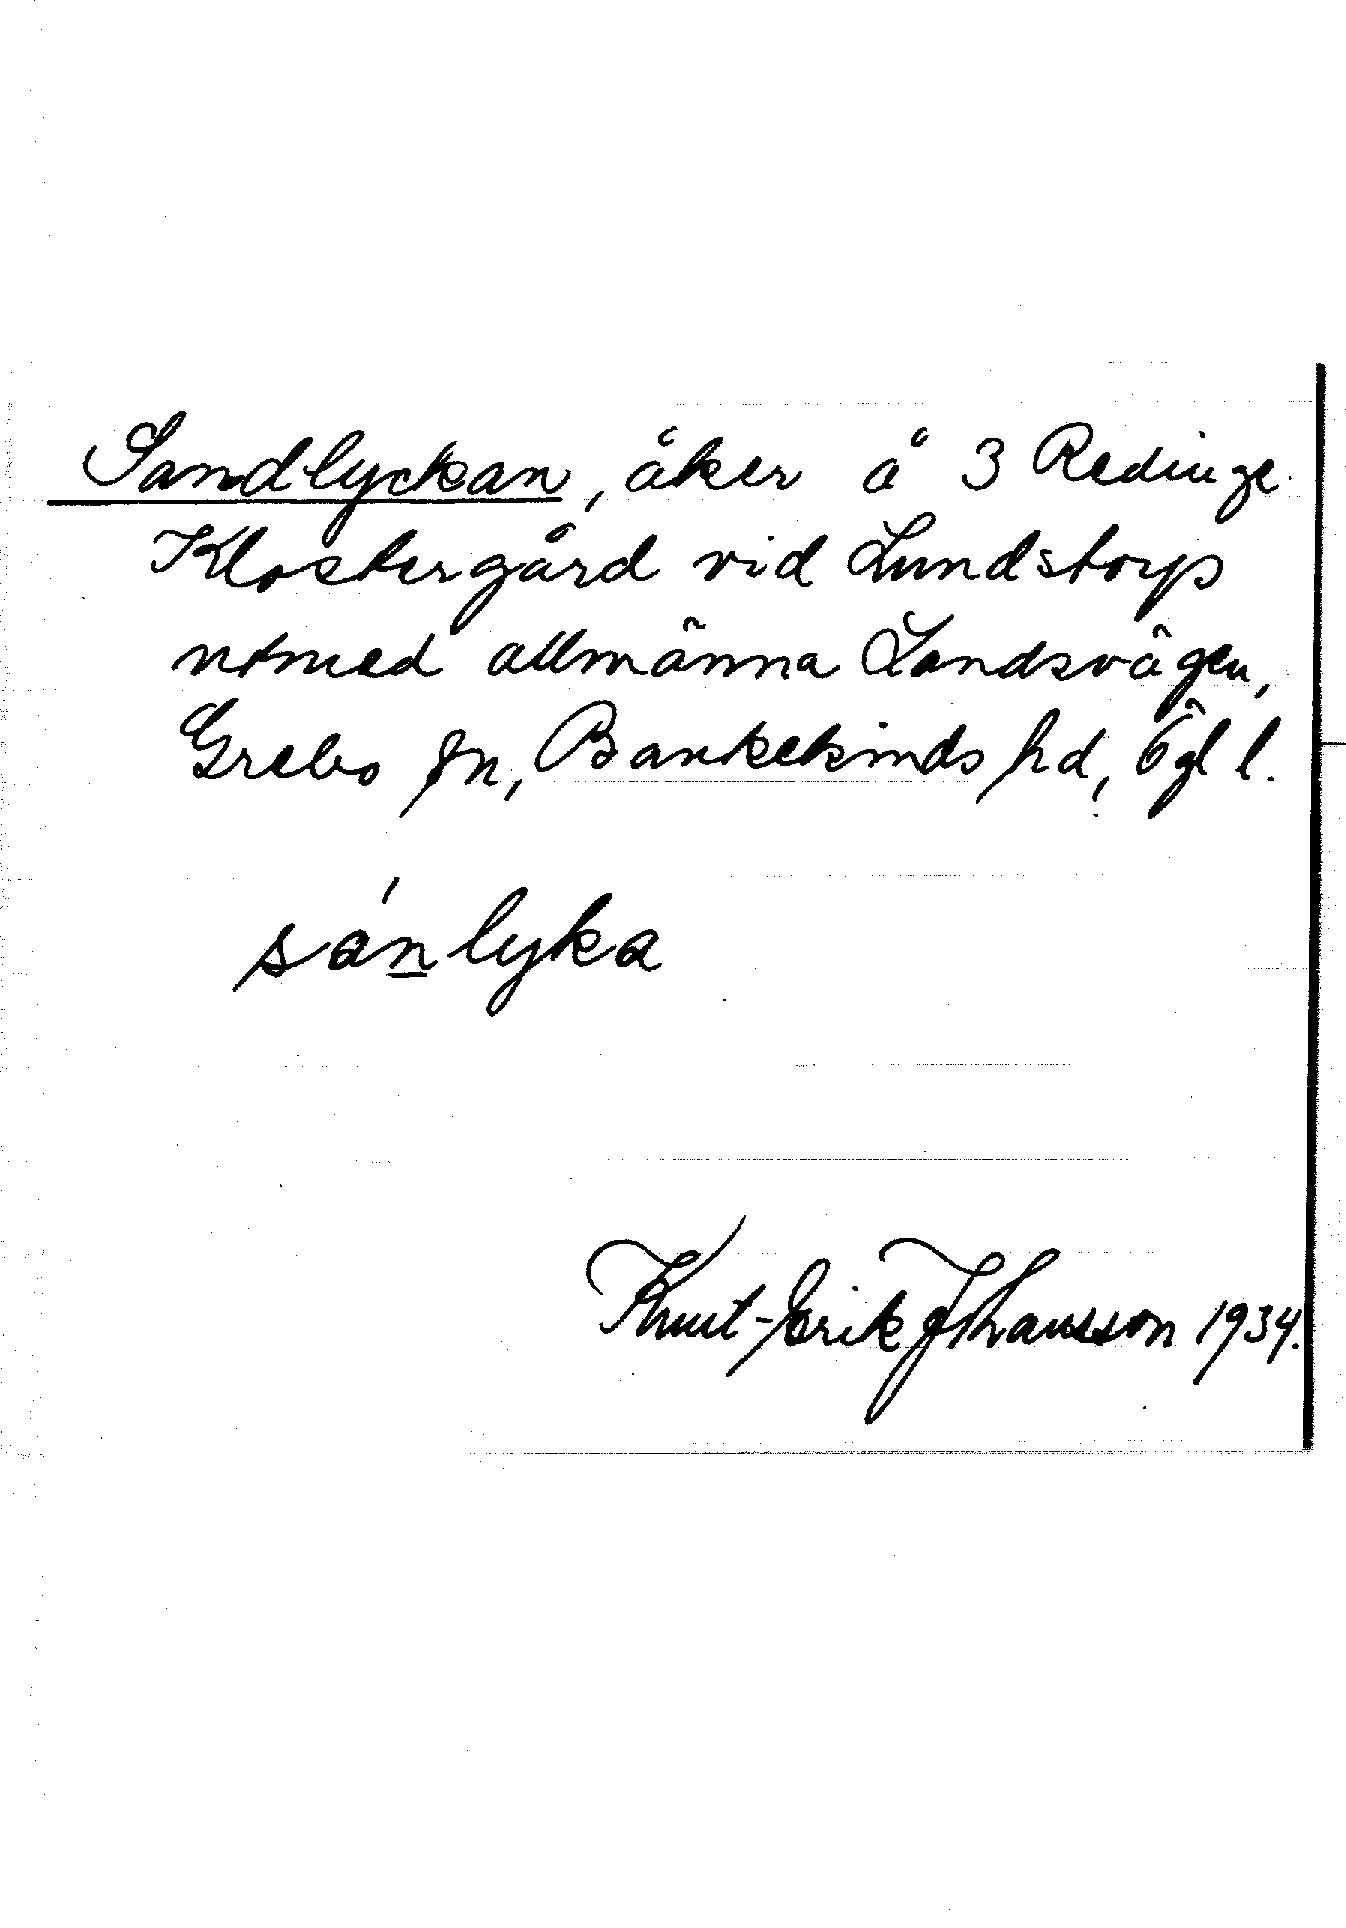 Sandlyckan, åker å 3 Redinge
Klostergård vid Lundstorp
utmed allmänna Landsvägen,
Grebo sn, Bankekinds hd, Ögl l.
sánlyka
Knut-Erik Johansson 1934.